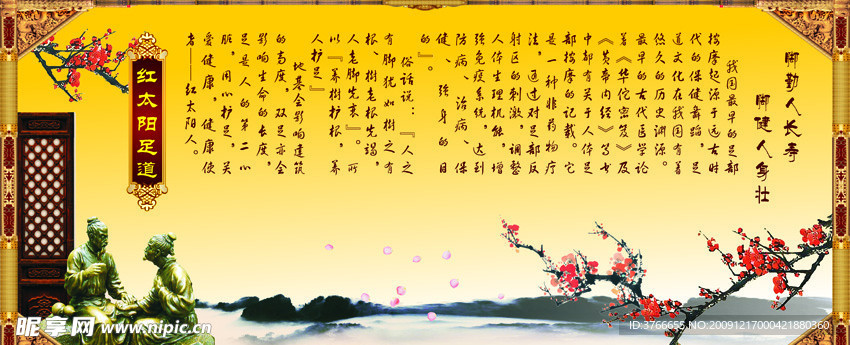 脚勤人长寿
脚健人身壮
我国最早的足部
按摩起源于远古时
代的保健舞蹈，足
道文化在我国有着
悠久的历史渊源。
最早的古代医学论
着《华佗密笈》及
《黄帝内经》等书
中都有关于人体足
部按摩的记载。它
是一种非药物疗
法，通过对足部反
射区的刺激，调整
人体生理机能，增
强免疫系统，达到
防病、治病、保
健、强身的目
的。
俗话说：『人之
有脚犹如树之有
根、树老根先竭，
人老脚先衰』。所
以『养树护根，养
人护足』
地基会影响建筑
的高度，双足亦会
影响生命的长度，
足是人的第二心
脏，用心护足，关
爱健康，健康使
者——红太阳人。
红太阳足道
昵享网 www.nipic.cn
ID:3766655 NO:20091217000421880360